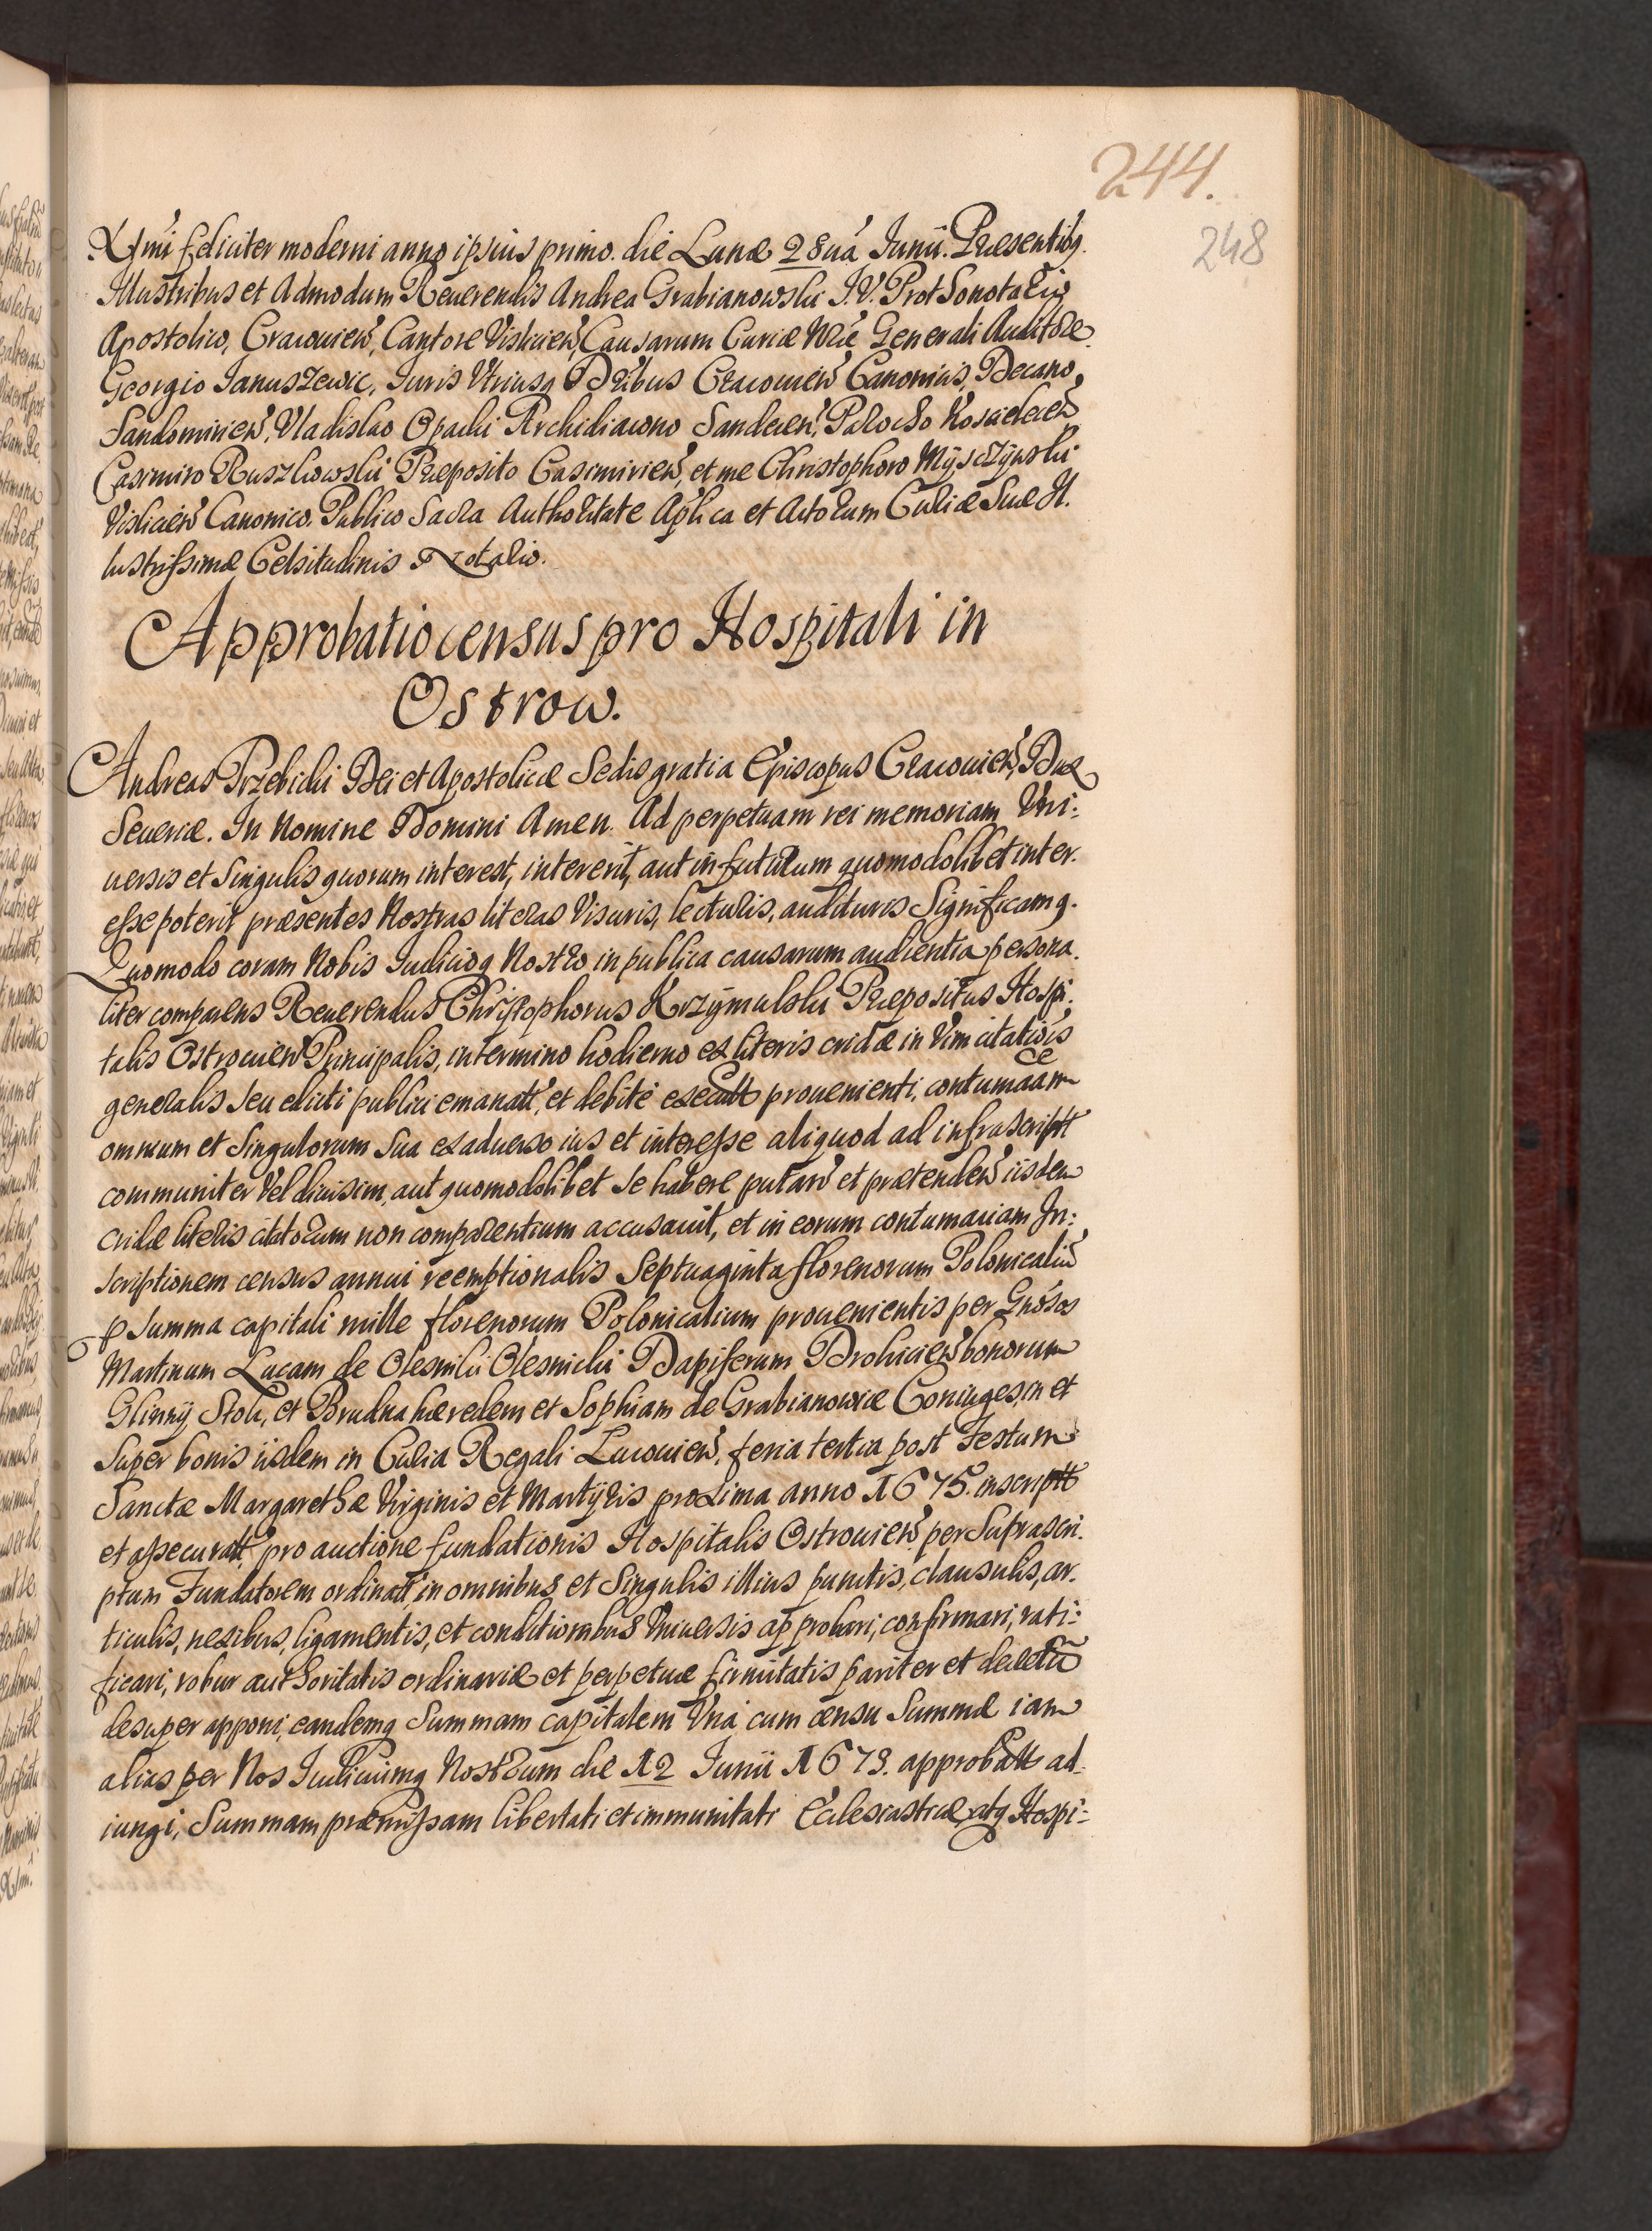 244.
248
Xmi feliciter moderni anno ipsius primo. die Lunæ 28uá Junii. Præsentibq.
Illustribus et Admodum Reuerendis Andrea Grabianowski J. V. Prothonotariis
Apostolico, Cracouień, Cantore Vislicień, Causarum Curiæ Nræ Generali Auditore
Georgio Januszewic, Juris Vtriusq Dribus Cracouień Canonicis, Decano,
Sandomirień, Vladislao Opacki Archidiacono Sandecień, Parocho Koscieleceń
Casimiro Ruszkowski Præposito Casimirień, et me Christophoro Mÿsczÿnski
Vislicień Canonico. Publico Sacra Authoritate Aplica et Actorum Curiæ Suæ Il.
lustrissimæ Celsitudinis Notario.
Approbatio census pro Hospitali in
Ostrow.
Andreas Trzebicki Dei et Apostolicæ Sedis gratia Episcopus Cracouień, Dux
Seueriæ. In Nomine Domini Amen. Ad perpetuam rei memoriam Vni:
uersis et Singulis quorum interest, intererit, aut in futurum quomodolibet inter.
esse poterit præsentes Nostras literas Visuris, lecturis, audituris Significamq.
Quomodo coram Nobis Iudicioq Nostro in publica causarum audientia persona.
liter comparens Reuerendus Christophorus Krzÿmulski Præpositus Hospi.
talis Ostrouień Principalis, in termino hodierno ex literis cridæ in Vim citatiois
generalis seu edicti publici emanatt, et debitè execútt prouenienti, contumaciam
omnium et Singulorum Sua ex aduerso ius et interesse aliquod ad infrascriptt
communiter Vel diuisim, aut quomodolibet Se habere putań et prætendeń iisdem
cridæ literis citatorum non comparentium accusauit, et in eorum contumaciam In:
scriptionem census annui reemptionalis Septuaginta florenorum Polonicaliū
p Summa capitali mille florenorum Polonicalium prouenientis per Gnósos
Martinum Lucam de Olesniki Olesnicki Dapiferum Drohicień bonorum
Glinnÿ Stok, et Brudna hæredem et Sophiam de Grabianowice Coniuges, in et
Super bonis iisdem in Curia Regali Lucouień, feria tertia post Festum
Sanctæ Margarethæ Virginis et Martÿris proxima anno 1675. inscriptt
et assecuratt pro auctione fundationis Hospitalis Ostrouień per Suprascri.
ptum Fundatorem ordinatt, in omnibus et Singulis illius punctis, clausulis, ar.
ticulis, nexibus, ligamentis, et conditionibus Vniuersis approbari, confirmari, rati:
ficari, robur authoritatis ordinariæ et perpetuæ firmitatis pariter et decretū
desuper apponi, eandemq Summam capitalem Vná cum censu Summæ iam
alias per Nos Iudiciumq Nostrum die 12 Junii 1673. approbatt ad.
iungi, Summam præmissam libertati et immunitati Ecclesiasticæ, atq Hospi-